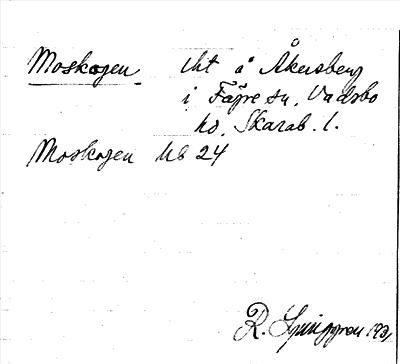 Moskogen lht å Åkersberg
i Fägre sn, Vadsbo
hd, Skarab. l.
Moskogen Us 24
R. Ljunggren 1931